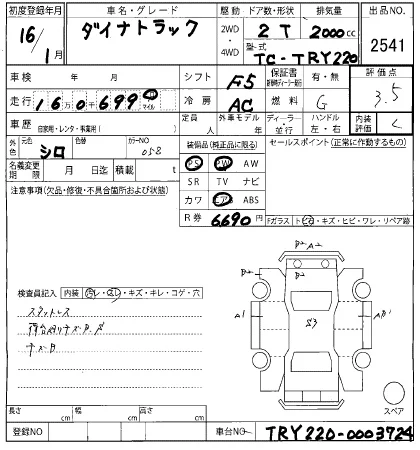 初度登録年月 車名・グレード 駆動・ドア数・形状 排気量 出品NO.
16/1月 ダイナトラック 2WD 4WD 2 T 2000cc 2541
型式 TC-TRY220
車検 年 月 シフト F5 保証書 有・無 評価点
走行 16万0千699 マイル 冷房 AC 燃料 G 3.5
車歴 自家用・レンタ・事業用( ) 定員 人 外車モデル 年 ディーラー・並行 ハンドル 左・右 内装評価 C
外色 元色 シロ 色替 カラーNO 058 装備品(純正品に限る) セールスポイント(正常に作動するもの)
名義変更期限 月 日迄 積載 t PS PW AW
注意事項(欠品・修復・不具合箇所および状態) SR TV ナビ
カワ エアB ABS
R券 6690円 Fガラス トビ石・キズ・ヒビ・ワレ・リペア跡
B2 A2
B2 B2
検査員記入 内装 汚レ・込シ・キズ・キレ・コゲ・穴
A1 S3
スタットレス
荷台内キズ
キズ
スペア
長さ cm 幅 cm 高さ cm
登録NO 車台No TRY220-0003724